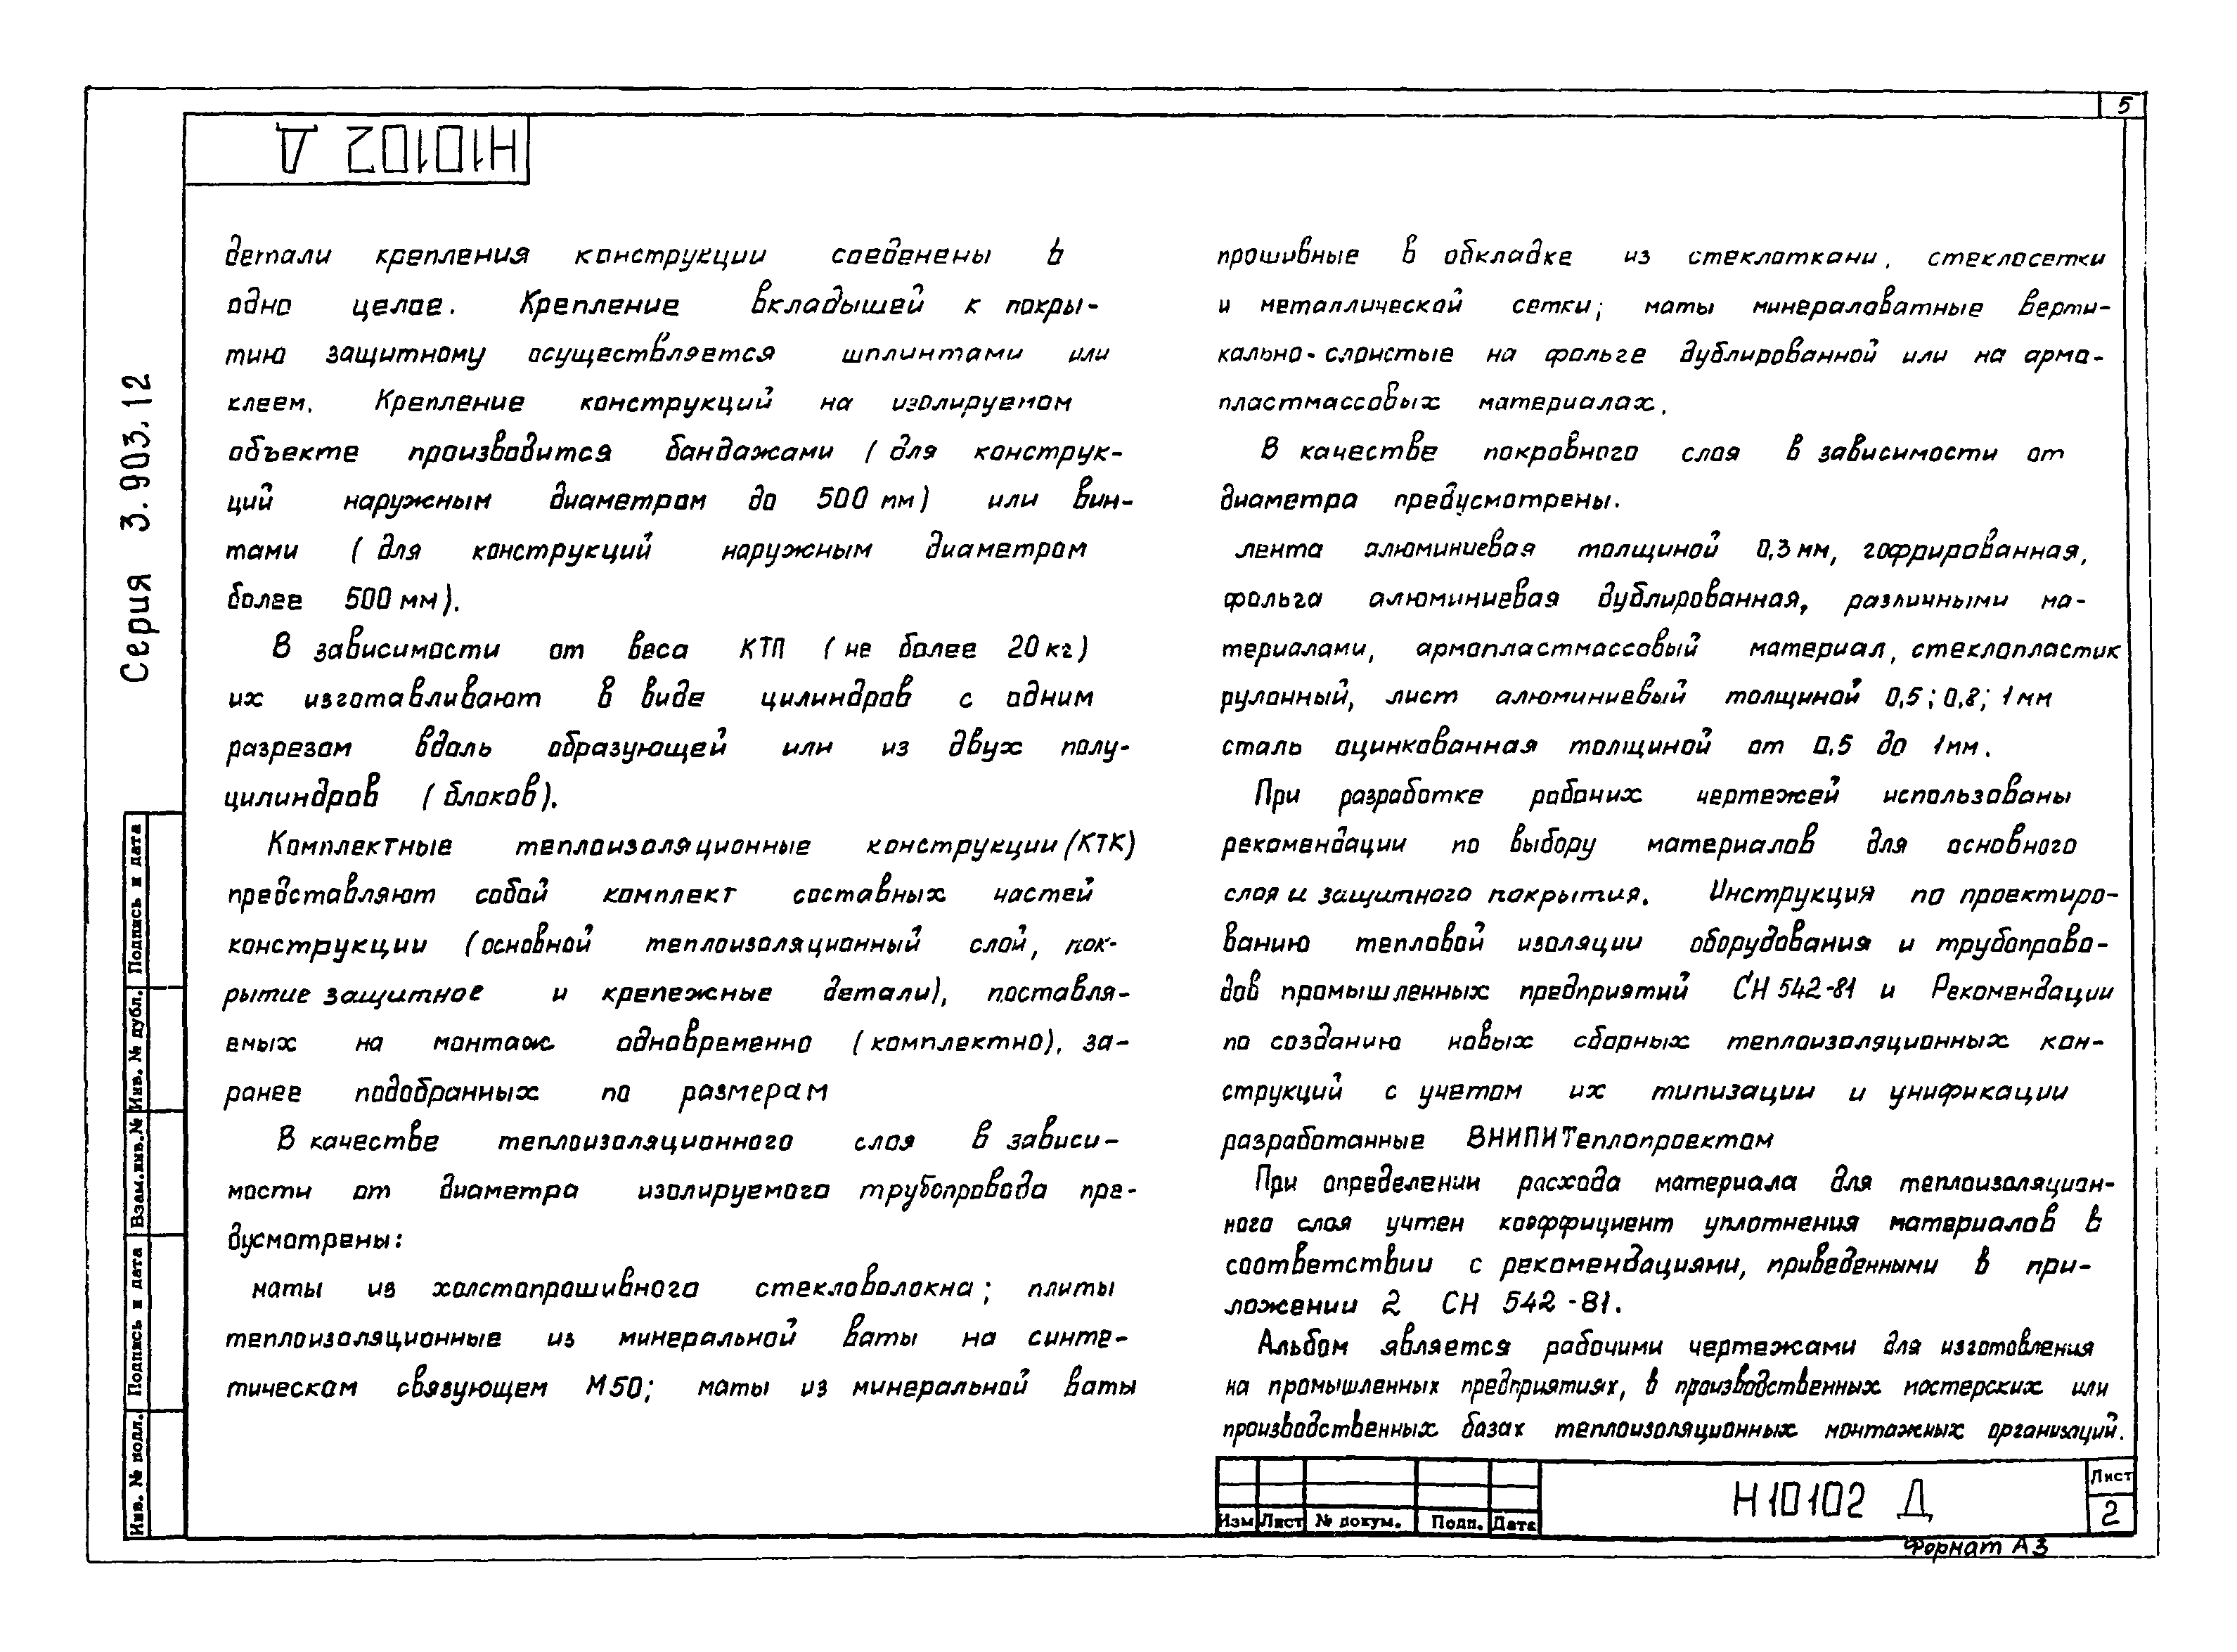 5
Н10102 Д
Серия 3.903.12
детали крепления конструкции соеденены в
одно целое. Крепление вкладышей к покры-
тию защитному осуществляется шплинтами или
клеем. Крепление конструкций на изолируемом
объекте производится бандажами (для конструк-
ций наружным диаметром до 500 мм) или вин-
тами (для конструкций наружным диаметром
более 500 мм).
В зависимости от веса КТП (не более 20 кг)
их изготавливают в виде цилиндров с одним
разрезом вдоль образующей или из двух полу-
цилиндров (блоков).
Комплектные теплоизоляционные конструкции (КТК)
представляют собой комплект составных частей
конструкции (основной теплоизоляционный слой, пок-
рытие защитное и крепежные детали), поставля-
емых на монтаж одновременно (комплектно), за-
ранее подобранных по размерам
В качестве теплоизоляционного слоя в зависи-
мости от диаметра изолируемого трубопровода пре-
дусмотрены:
маты из холстопрошивного стекловолокна; плиты
теплоизоляционные из минеральной ваты на синте-
тическом связующем М50; маты из минеральной ваты
прошивные в обкладке из стеклоткани, стеклосетки
и металлической сетки; маты минераловатные верти-
кально-слоистые на фольге дублированной или на армо-
пластмассовых материалах.
В качестве покровного слоя в зависимости от
диаметра предусмотрены.
лента алюминиевая толщиной 0,3 мм, гофрированная,
фольга алюминиевая дублированная, различными ма-
териалами, армопластмассовый материал, стеклопластик
рулонный, лист алюминиевый толщиной 0,5; 0,8; 1 мм
сталь оцинкованная толщиной от 0,5 до 1 мм.
При разработке рабочих чертежей использованы
рекомендации по выбору материалов для основного
слоя и защитного покрытия. Инструкция по проектиро-
ванию тепловой изоляции оборудования и трубопрово-
дов промышленных предприятий СН 542-81 и Рекомендации
по созданию новых сборных теплоизоляционных кон-
струкций с учетом их типизации и унификации
разработанные ВНИПИТеплопроектом
При определении расхода материала для теплоизоляцион-
ного слоя учтен коэффициент уплотнения материалов в
соответствии с рекомендациями, приведенными в при-
ложении 2 СН 542-81.
Альбом является рабочими чертежами для изготовления
на промышленных предприятиях, в производственных мастерских или
производственных базах теплоизоляционных монтажных организаций.
Инв. № подл. Подпись и дата Взам.инв.№ Инв. № дубл. Подпись и дата
Изм Лист № докум. Подп. Дата
Н10102 Д
Лист
2
Формат А3